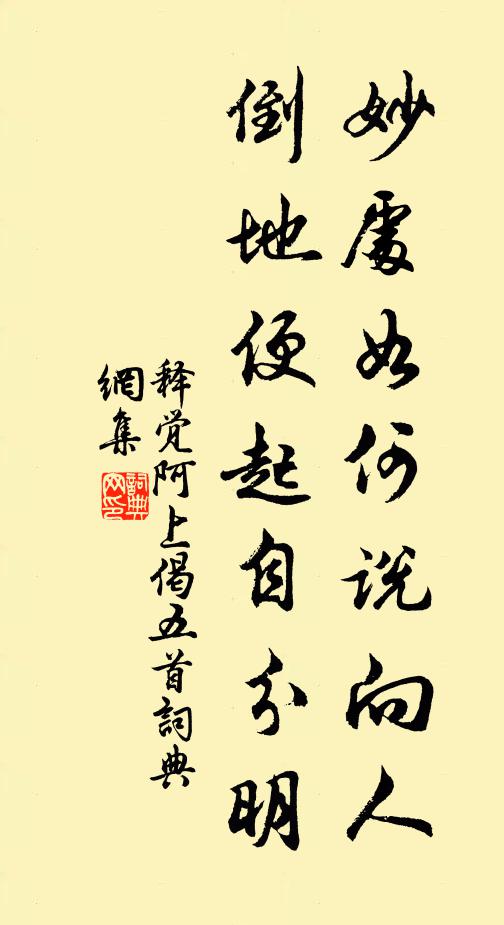 妙處如何説向人
倒地便起自分明
释觉阿上偈五首詞典
網集
詞典
网印